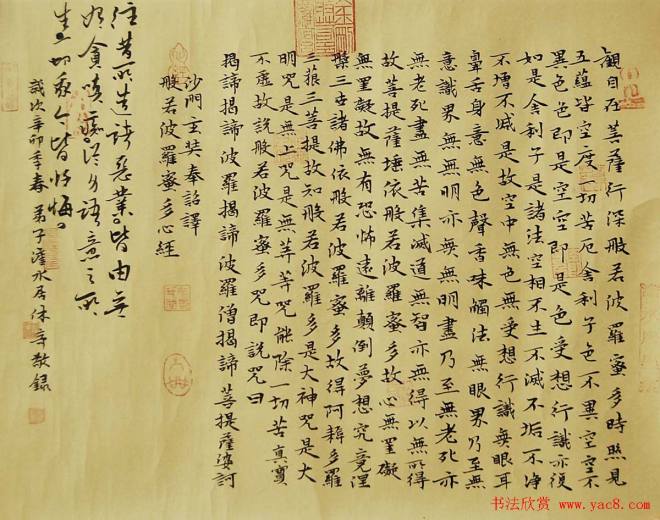 觀自在菩薩行深般若波羅蜜多時照見
五蘊皆空度一切苦厄舍利子色不異空空不
異色色即是空空即是色受想行識亦復
如是舍利子是諸法空相不生不滅不垢不净
不增不減是故空中無色無受想行識無眼耳
鼻舌身意無色聲香味觸法無眼界乃至無
意識界無無明亦無無明盡乃至無老死亦
無老死盡無苦集滅道無智亦無得以無所得
故菩提薩埵依般若波羅蜜多故心無罣礙
無罣礙故無有恐怖遠離顛倒夢想究竟涅
槃三世諸佛依般若波羅蜜多故得阿耨多羅
三藐三菩提故知般若波羅多是大神咒是大
明咒是無上咒是無等等咒能除一切苦真實
不虛故說般若波羅蜜多咒即說咒曰
揭諦揭諦波羅揭諦波羅僧揭諦菩提薩婆訶
沙門玄奘奉詔譯
般若波羅蜜多心經
往昔所造諸惡業皆由無
始貪嗔癡從身語意之所
生一切我今皆懺悔
歲次辛卯季春弟子水居休辛敬錄
书法欣赏 www.yac8.com